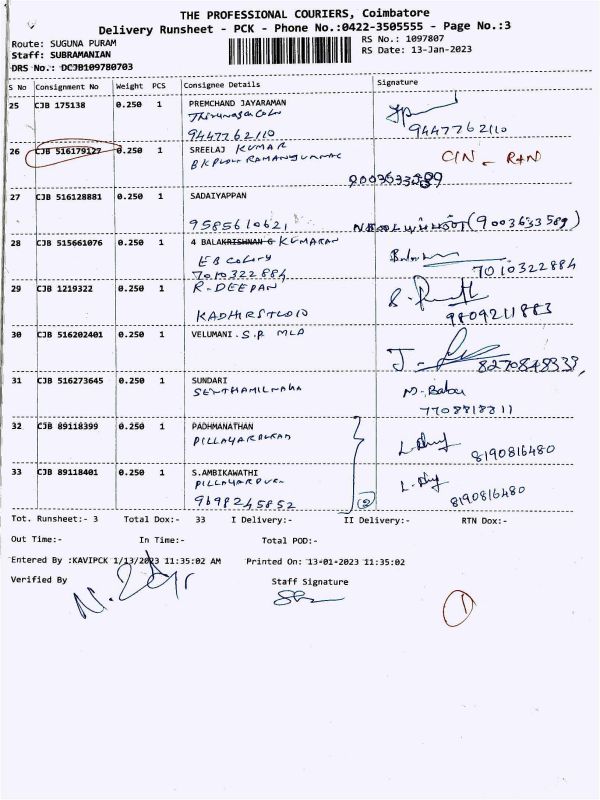 THE PROFESSIONAL COURIERS, Coimbatore
Delivery Runsheet - PCK - Phone No.:0422-3505555 - Page No.:3
Route: SUGUNA PURAM
RS No.: 1097807
Staff: SUBRAMANIAN
RS Date: 13-Jan-2023
DRS No.: DCJB109780703
S No Consignment No Weight PCS Consignee Details Signature
25 CJB 175138 0.250 1 PREMCHAND JAYARAMAN
9447762110 9447762110
26 CJB 516179127 0.250 1 SREELAJ KUMAR
9003633589
27 CJB 516128881 0.250 1 SADAIYAPPAN
9585610621 (9003633589)
28 CJB 515661076 0.250 1 4 BALAKRISHNAN G KUMARAN
EB Colony
7010322884 7010322884
29 CJB 1219322 0.250 1 R-DEEPAN
KADHIRSTUDIO 9809211883
30 CJB 516202401 0.250 1 VELUMANI.S.P. MLA
8270848333,
31 CJB 516273645 0.250 1 SUNDARI
M. Babu
7708818811
32 CJB 89118399 0.250 1 PADHMANATHAN
8190816480
33 CJB 89118401 0.250 1 S.AMBIKAWATHI
9698245852 2 8190816480
Tot. Runsheet:- 3 Total Dox:- 33 I Delivery:- II Delivery:- RTN Dox:-
Out Time:- In Time:- Total POD:-
Entered By :KAVIPCK 1/13/2023 11:35:02 AM Printed On: 13-01-2023 11:35:02
Verified By Staff Signature
1